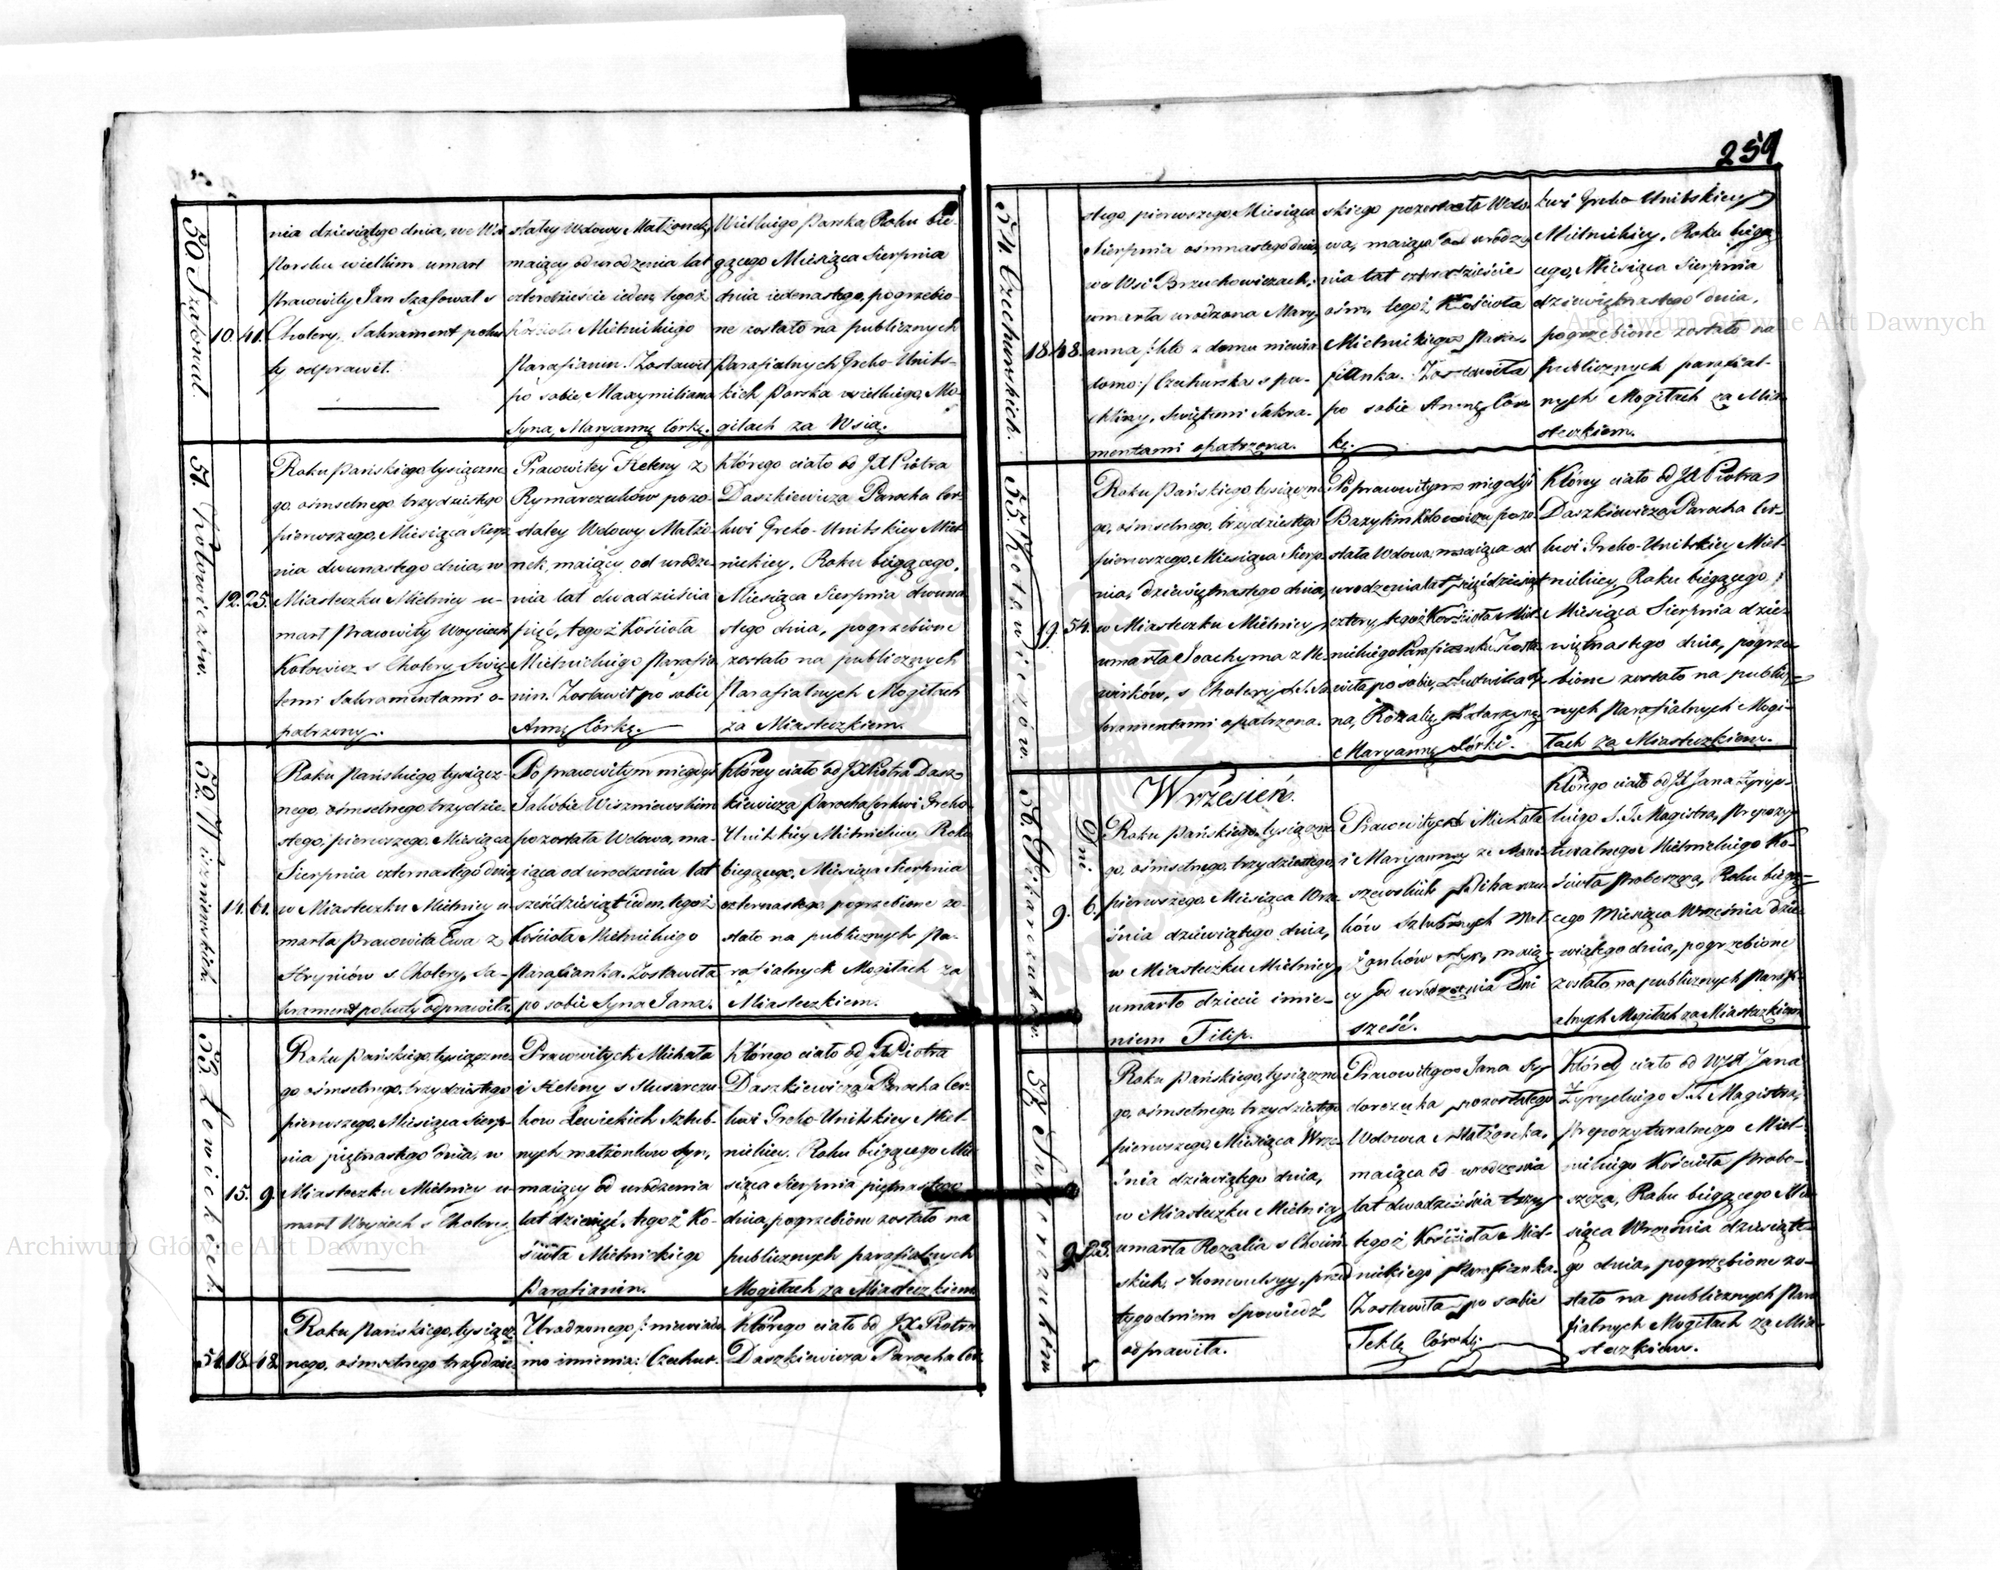 259
50 Szafowal.
10. 41.
nia dziesiątego dnia, we Wsi
Porsku wielkim umarł
Pracowity Jan Szafował s
Cholery, Sakrament poku-
ty odprawił.
staley Wdowy Małżonek,
maiący od urodzenia lat
czterdzieście ieden, tegoż
Kościoła Mielnickiego
Parafianin. Zostawił
po sobie Maxymiliana
Syna, Maryannę Corkę.
Wielkiego Parska, Roku bie-
gącego Miesiąca Sierpnia
dnia iedenastego, pogrzebio-
ne zostało na publicznych
Parafialnych Greko-Units-
kich Porska wielkiego, Mo-
giłach za Wsią.
51. Kotowiczów.
12. 25.
Roku Pańskiego, tysiączne-
go, osmsetnego, trzydziestego
pierwszego, Miesiąca Sierp-
nia dwunastego dnia, w
Miasteczku Mielnicy u-
marł Pracowity Woyciech
Kotowicz s Cholery, Swię-
temi Sakramentami o-
patrzony.
Pracowitey Heleny z
Rymarczuków pozo-
staley Wdowy Małżo-
nek, maiący od urodze-
nia lat dwadzieścia
pięć, tegoż Kościoła
Mielnickiego Parafia-
nin. Zostawił po sobie
Annę Córkę.
którego ciało od JX Piotra
Daszkiewicza Parocha Cer-
kwi Greko-Unitskiey Miel-
nickiey. Roku biegącego,
Miesiąca Sierpnia dwuna-
stego dnia, pogrzebione
zostało na publicznych
Parafialnych Mogiłach
za Miasteczkiem.
52. Wiszniewskich.
14. 61.
Roku Pańskiego, tysiącz-
nego, osmsetnego, trzydzie-
stego, pierwszego, Miesiąca
Sierpnia czternastego dnia,
w Miasteczku Mielnicy u-
marła Pracowita Ewa z
Hryniów s Cholery, Sa-
krament pokuty odprawiła.
Po pracowitym niegdyś
Jakóbie Wiszniewskim
pozostała Wdowa, ma-
iąca od urodzenia lat
sześćdziesiąt ieden, tegoż
Kościoła Mielnickiego
Parafianka. Zostawiła
po sobie Syna Jana.
którey ciało od JX Piotra Dasz-
kiewicza Parocha Cerkwi Greko-
Unitskiey Mielnickiey, Roku
biegącego, Miesiąca Sierpnia
czternastego, pogrzebione zo-
stało na publicznych Pa-
rafialnych Mogiłach za
Miasteczkiem.
53. Lewickich.
15. 9.
Roku Pańskiego, tysiączne-
go osmsetnego, trzydziestego
pierwszego, Miesiąca Sierp-
nia piętnastego dnia, w
Miasteczku Mielnicy u-
marł Woyciech s Cholery.
Pracowitych Michała
i Heleny s Slusarczu-
kow Lewickich Szlub-
nych małżonkow Syn,
maiący od urodzenia
lat dziewięć, tegoż Ko-
ścioła Mielnickiego
Parafianin.
którego ciało od JX Piotra
Daszkiewicza Parocha Cer-
kwi Greko-Unitskiey Miel-
nickiey. Roku biegącego Mie-
siąca Sierpnia piętnastego
dnia, pogrzebione zostało na
publicznych parafialnych
Mogiłach za Miasteczkiem
54. 18. 48.
Roku Pańskiego, tysiącz-
nego, osmsetnego trzydzie-
Urodzonego /: niewiado-
mo imienia :/ Czuhur-
którego ciało od JX Piotra
Daszkiewicza Parocha Cer-
54 Czuhurskich.
18. 48.
stego, pierwszego, Miesiąca
Sierpnia osmnastego dnia,
we Wsi Brzuchowiczach,
umarła urodzona Mary-
anna /: kto z domu niewia-
domo :/ Czuhurska s pu-
chliny, Swiętemi Sakra-
mentami opatrzona.
skiego pozostała Wdo-
wa, maiąca od urodze-
nia lat czterdzieście
ośm, tegoż Kościoła
Mielnickiego Para-
fianka. Zostawiła
po sobie Annę Cór-
kę.
kwi Greko-Unitskiey
Mielnickiey. Roku biegą-
cego, Miesiąca Sierpnia
dziewiętnastego dnia,
pogrzebione zostało na
Publicznych parafial-
nych Mogiłach za Mia-
steczkiem.
55. Kotowiczow.
19. 54.
Roku Pańskiego, tysiączne-
go, osmsetnego, trzydziestego
pierwszego, Miesiąca Sierp-
nia, dziewiętnastego dnia,
w Miasteczku Mielnicy
umarła Joachyma z Ne-
wirków, s Cholery, S.S. Sa-
kramentami opatrzona.
Po pracowitym niegdyś
Bazylim Kotowiczu pozo-
stała Wdowa, maiąca od
urodzenia lat pięćdziesiąt
cztery, tegoż Kościoła Miel-
nickiego Parafianka. Zosta-
wiła po sobie, Ludwika Sy-
na, Rozalię, Katarzynę,
Maryannę Córki.
Którey ciało od JX Piotra
Daszkiewicza Parocha Cer-
kwi Greko-Unitskiey Miel-
nickiey, Roku biegącego,
Miesiąca Sierpnia dzie-
więtnastego dnia, pogrze-
bione zostało na publicz-
nych Parafialnych Mogi-
łach za Miasteczkiem.
Wrzesień.
56.
Dni
9. 6.
Roku Pańskiego, tysiączne-
go, osmsetnego, trzydziestego,
pierwszego, Miesiąca Wrze-
śnia dziewiątego dnia,
w Miasteczku Mielnicy
umarło dziecie imie-
niem Filip.
Pracowitych Michała
i Maryanny ze
szewskich
ków Szlubnych Mał-
żonków Syn, maią-
cy od urodzenia Dni
sześć.
którego ciało od JX Jana Żyryc-
kiego S.T. Magistra, Prepozy-
turalnego Mielnickiego Ko-
ścioła Proboszcza, Roku biegą-
cego Miesiąca Września dzie-
wiątego dnia, pogrzebione
zostało na publicznych Parafi-
alnych Mogiłach za Miasteczkiem
57.
9. 23.
Roku Pańskiego, tysiączne-
go, osmsetnego, trzydziestego
pierwszego, Miesiąca Wrze-
śnia dziewiątego dnia,
w Miasteczku Mielnicy
umarła Rozalia s Chociń-
skich, s konwulsyy, przed
tygodniem Spowiedź
odprawiła.
Pracowitego Jana Sy-
dorczuka pozostałego
Wdowca Małżonka,
maiąca od urodzenia
lat dwadzieścia trzy
tegoż Kościoła Miel-
nickiego Parafianka.
Zostawiła po sobie
Teklę Córkę.
Którey ciało od WJX Jana
Żyryckiego S.T. Magistra,
Prepozyturalnego Miel-
nickiego Kościoła Probo-
szcza, Roku biegącego Mie-
siąca Września dziesiąte-
go dnia, pogrzebione zo-
stało na publicznych Para-
fialnych Mogiłach za Mia-
steczkiem.
Archiwum Główne Akt Dawnych
Archiwum Główne Akt Dawnych